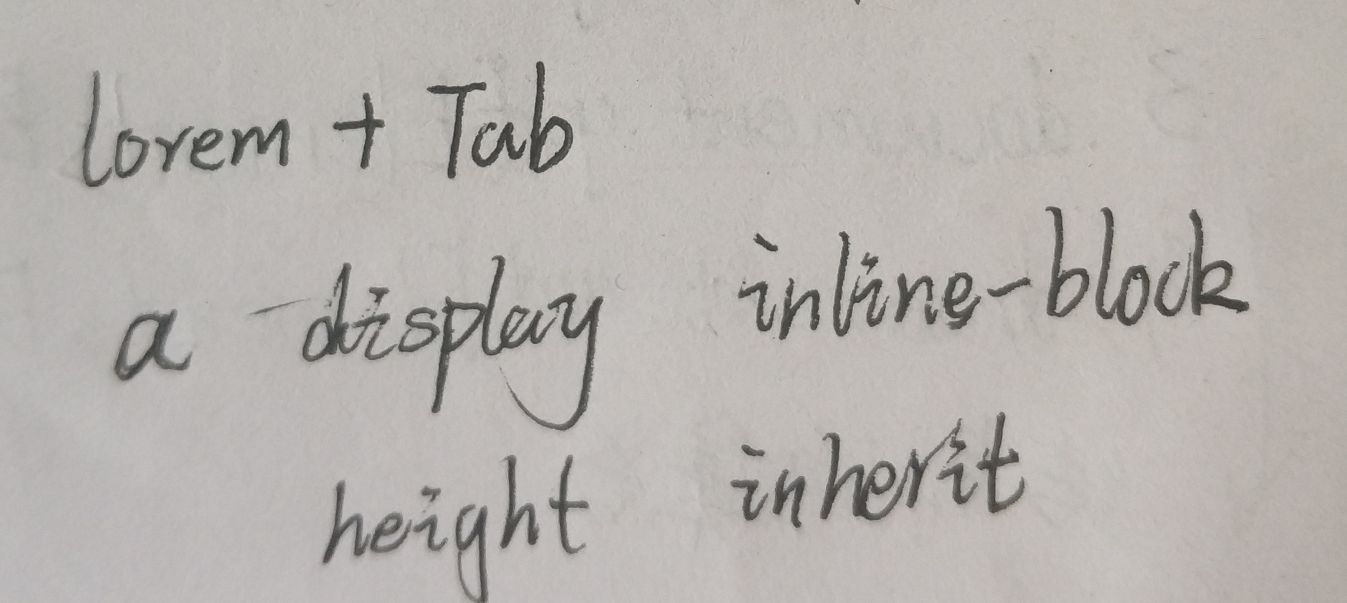 lorem + Tab
a display inline-block
height inherit